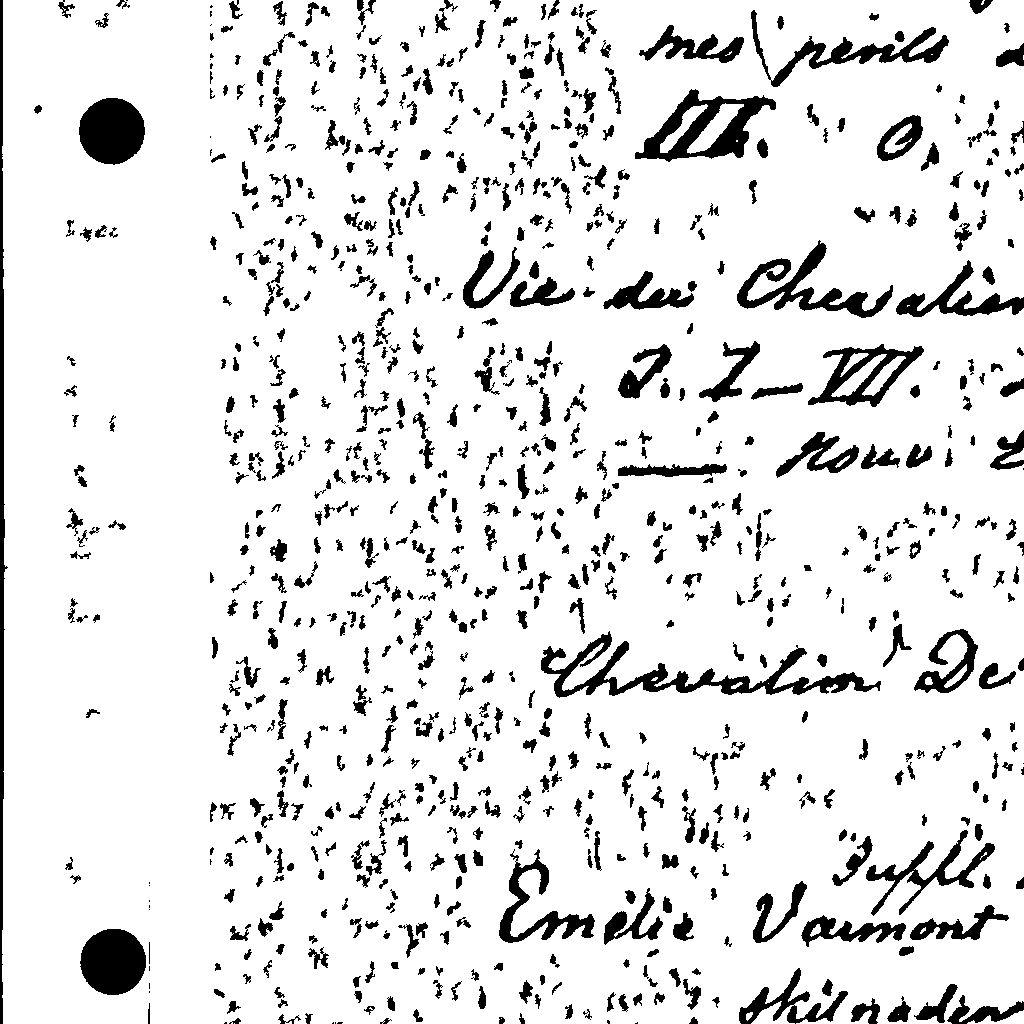 mes périls
III. O.
Vie du Chevalier
P. I—VII.
— Nouv.
Chevalier De
Suppl.
Emélie Varmont
skilnaden